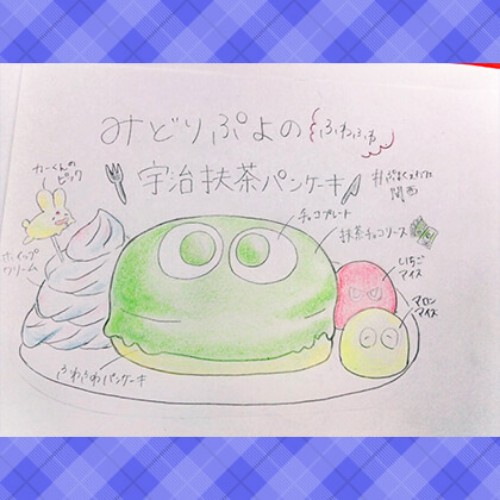 みどりぷよの ふわふわ
宇治抹茶パンケーキ
関西
カーくんの
ピック
チョコプレート
抹茶チョコソース
ホイップ
クリーム
いちご
アイス
マロン
アイス
ふわふわパンケーキ